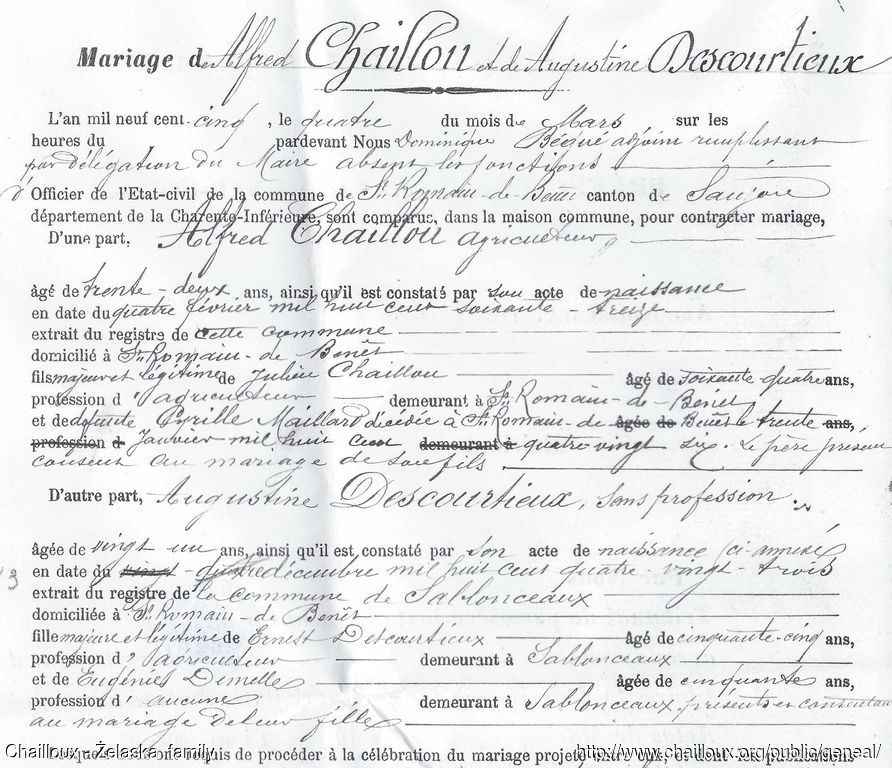 Mariage de Alfred Chaillou et de Augustine Descourtieux
L'an mil neuf cent cinq, le quatre du mois de Mars sur les
heures du pardevant Nous Dominique Bégué adjoint remplissant
par délégation du Maire absent les fonctions
d'Officier de l'Etat-civil de la commune de St Romain-de-Benêt canton de Saujon
département de la Charente-Inférieure, sont comparus, dans la maison commune, pour contracter mariage,
D'une part, Alfred Chaillou agriculteur
âgé de trente-deux ans, ainsi qu'il est constaté par son acte de naissance
en date du quatre février mil huit cent soixante-treize
extrait du registre de cette commune
domicilié à St Romain-de Benêt
fils majeur et légitime de Julien Chaillou âgé de soixante quatre ans,
profession d'agriculteur demeurant à St Romain-de-Benêt
et de défunte Pyrille Maillard décédée à St Romain-de âgée de Benêt le trente ans,
profession d Janvier mil huit cent demeurant à quatre-vingt six. Le père présent
consent au mariage de son fils
D'autre part, Augustine Descourtieux, sans profession
âgée de vingt un ans, ainsi qu'il est constaté par son acte de naissance ci-annexé
en date du vingt-quatre décembre mil huit cent quatre-vingt-trois
extrait du registre de la commune de Sablonceaux
domiciliée à St Romain-de Benêt
fille majeure et légitime de Ernest Descourtieux âgé de cinquante-cinq ans,
profession d'agriculteur demeurant à Sablonceaux
et de Eugénie Dimelle âgée de cinquante ans,
profession d'aucune demeurant à Sablonceaux présents et consentant
au mariage de leur fille
Lesquels nous ont requis de procéder à la célébration du mariage projeté entre eux, et dont les publications
Chailloux - Żelaska family
http://www.chailloux.org/public/geneal/